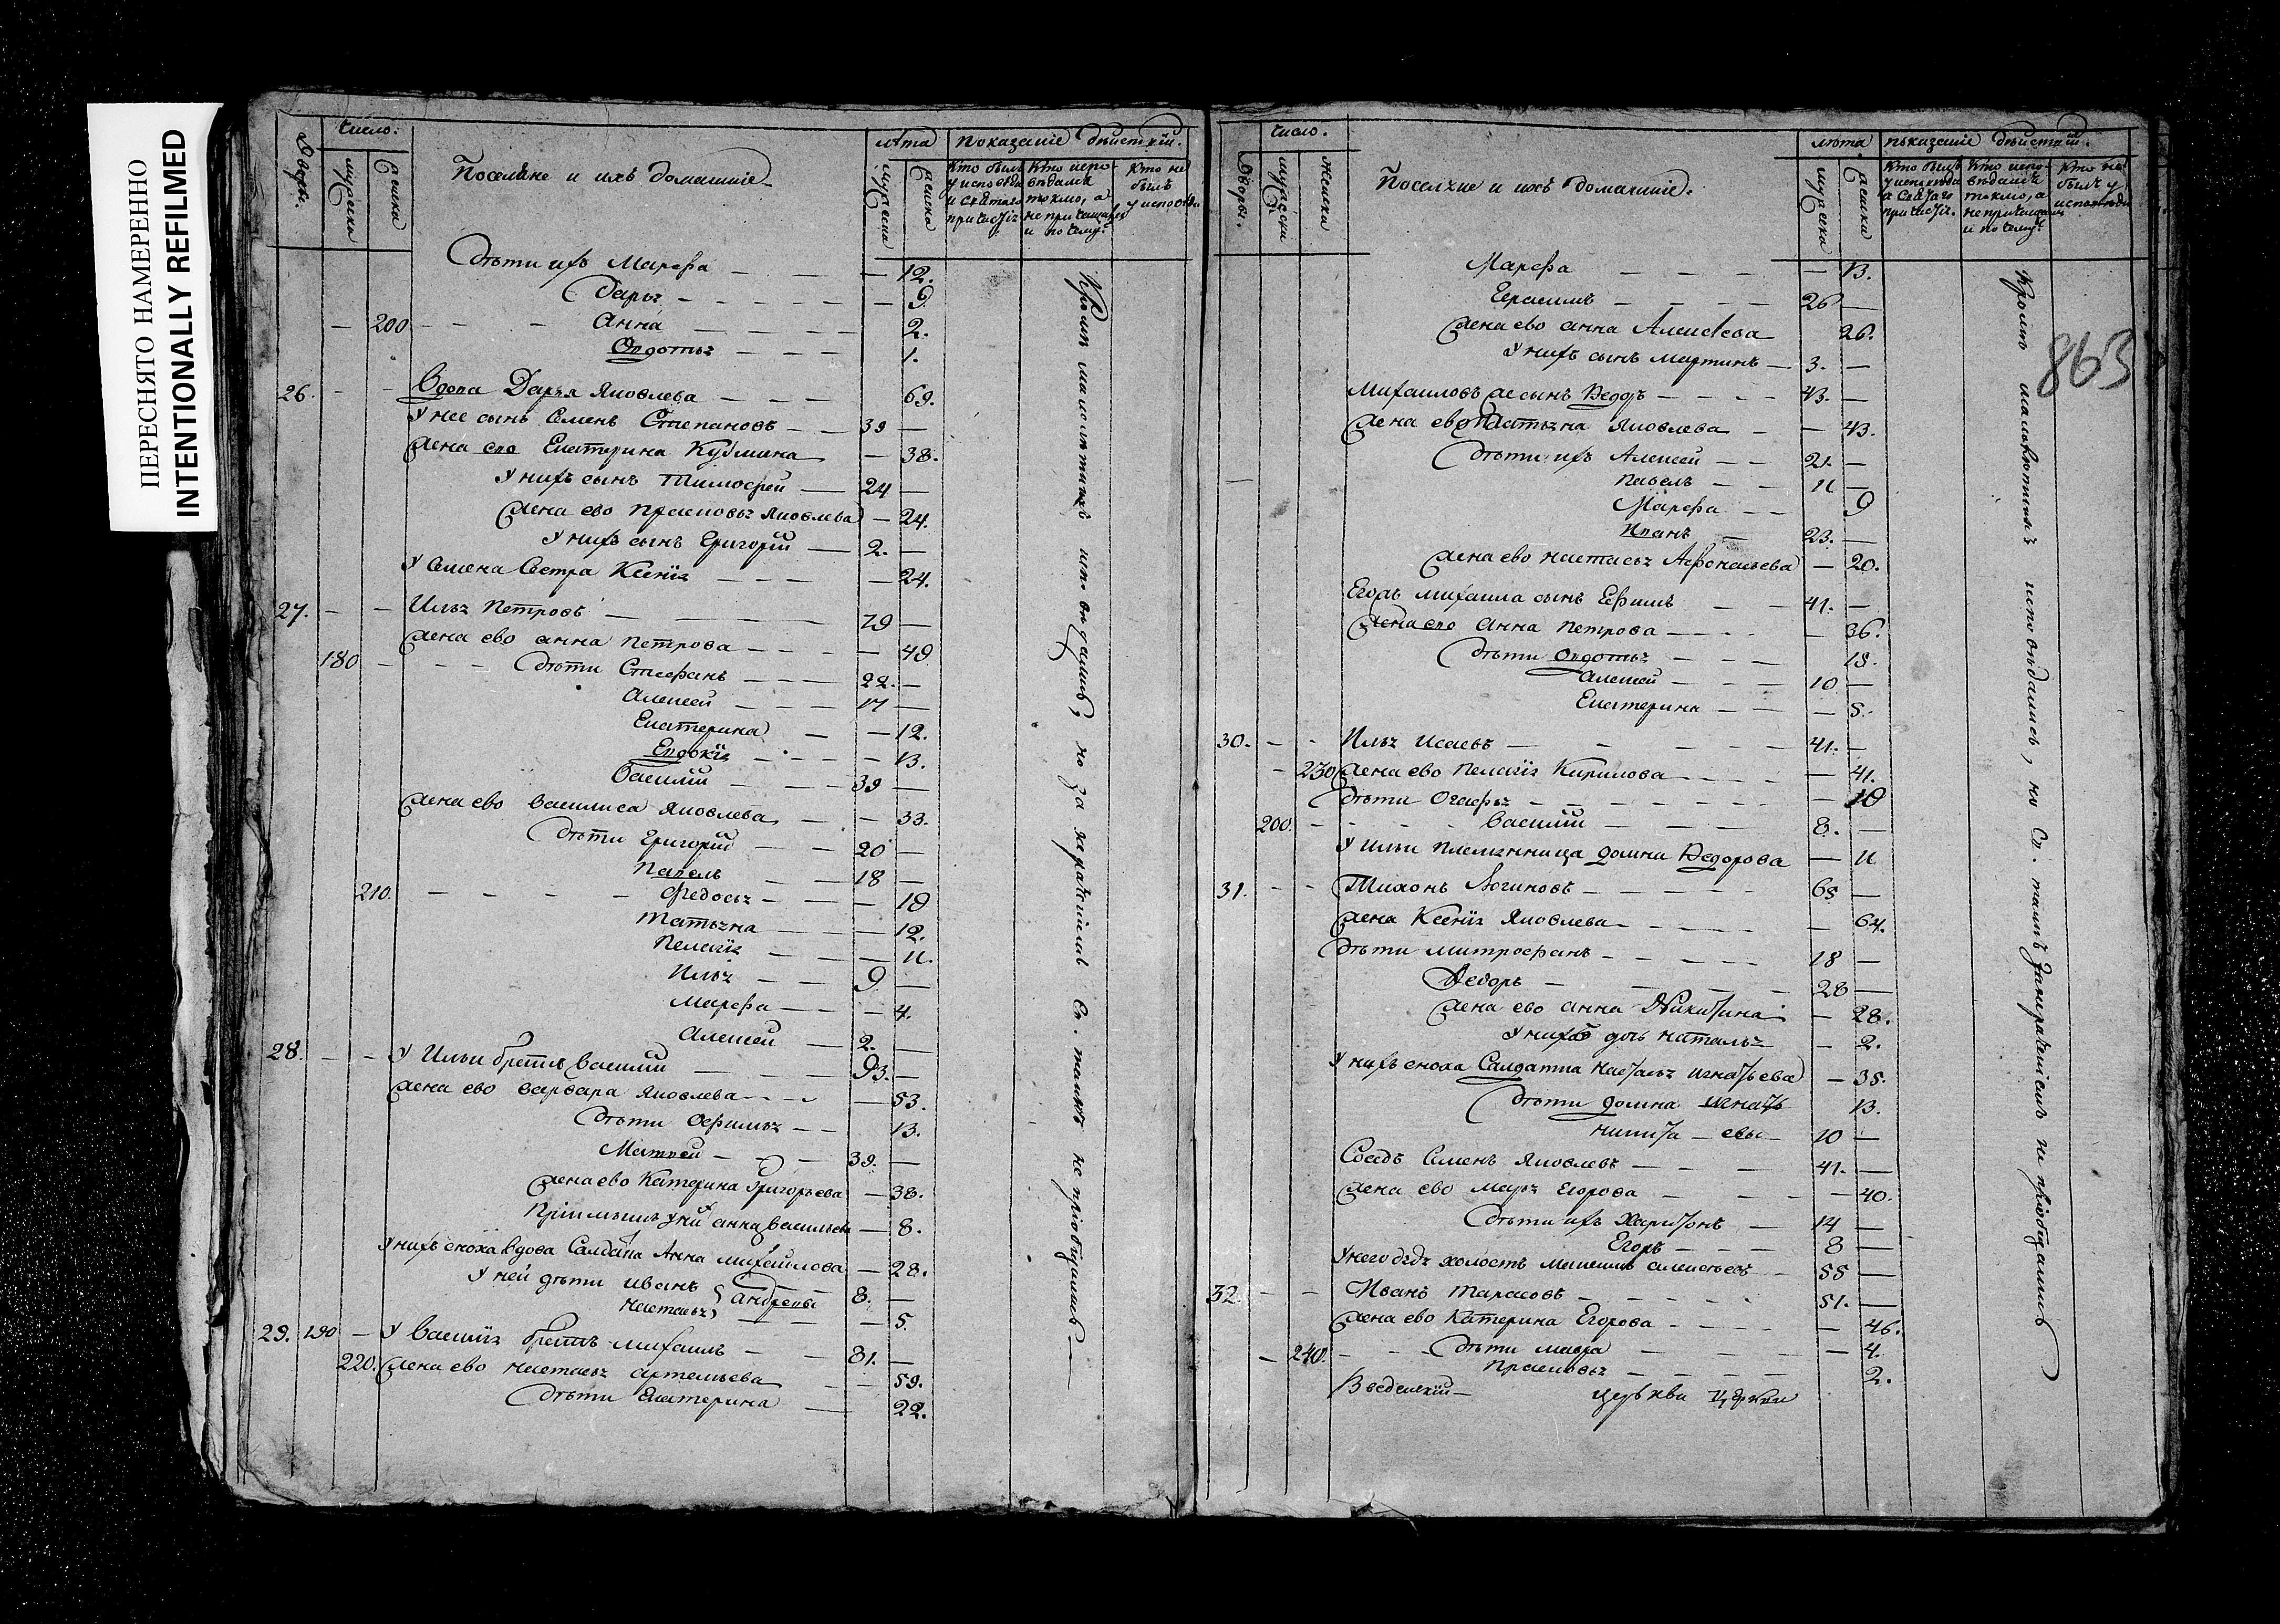 ПЕРЕСНЯТО НАМЕРЕННО
INTENTIONALLY REFILMED
Дворы. число: мужеска женска
Поселяне и ихъ домашніе
лѣта мужеска женска
показаніе дѣйствій.
Кто былъ у исповѣди и святаго причастія
Кто исповѣдался токмо, а не причащался и почему.
Кто не былъ у исповѣди
дѣти ихъ Марѳа — — 12.
Дарья — — 9
— 200 — Анна — 2.
Овдотья — 1.
26. — — Вдова Дарья Яковлева — 69.
У нее сынъ Семенъ Степановъ — 39 —
жена ево Екатерина Кузмина — 38.
У нихъ сынъ Тимофей — 24 —
жена ево Прасковья Яковлева — 24.
У нихъ сынъ Григорій — 2. —
У Семена сестра Ксенія — — 24.
27. — — Илья Петровъ — 79 —
жена ево анна Петрова — — 49
180 — дѣти Стефанъ — 22. —
Алексей — 17 —
Екатерина — — 12.
Евдокія — — 13.
Василій — 39 —
жена ево Василиса Яковлева — — 33.
дѣти Григорій — 20 —
Павелъ — 18 —
210. — Федосья — — 19
Татьяна — — 12.
Пелагія — — 11.
Илья — 9 —
Марѳа — — 4.
Алексей — 2. —
28. — — У Ильи братъ Василій — 93. —
жена ево варвара Яковлева — — 53.
дѣти Офимья — 13.
Матвей — 39. —
жена ево Катерина Григорьева — 38.
Пріимышъ у ни анна Васильева — 8.
У нихъ сноха вдова Салдатка Анна михайлова — 28.
У ней дѣти иванъ } андревы 8. —
Настасья — 5.
29. 190 — У Василія братъ михаилъ — 81. —
220. жена ево настасья артемьева — 59.
дѣти Екатерина — 22.
Кромѣ малолѣтнихъ исповѣдались, но за нераченіемъ Св. таинъ не пріобщались —
Дворы. число. мужеска женска
Поселяне и ихъ домашніе.
лѣта мужеска женска
показаніе дѣйствій.
Кто былъ у исповѣди и святаго причастія.
Кто исповѣдался токмо, а не причащался и почему
Кто не былъ у исповѣди
863
Марѳа — — 13.
Герасимъ — 26 —
жена ево анна Алексѣева 26.
У нихъ сынъ мартинъ — 3. —
Михаиловъ же сынъ Ѳедоръ — 43. —
жена ево Татьяна Яковлева — — 43.
дѣти ихъ Алексей — 21. —
павелъ — 11 —
Марѳа — 9
Иванъ — 23. —
жена ево настасья Афонасьева — 20.
Егожъ михаила сынъ Ефимъ — 41. —
жена ево Анна петрова — — 36.
дѣти Овдотья — 18.
алексей — 10 —
Екатерина — — 5.
30. — — Илья Исаевъ — 41. —
— 230 жена ево пелагія Кирилова — — 41.
дѣти Огафья — — 19
200. — Василій — 8. —
У ильи племянница домна Ѳедорова — 11
31. — — Тихонъ Логиновъ — 65 —
жена Ксенія Яковлева — — 64.
дѣти митрофанъ — 18 —
Ѳедоръ — 28 —
жена ево анна Никитина — 28.
У нихъ дочь наталья — 2.
У нихъ сноха Салдатка настасья игнатьева — 35.
дѣти домна игнать 13.
никита — евы — 10 —
Соседъ Семенъ Яковлевъ — 41. —
жена ево марья Егорова — — 40.
дѣти ихъ Харитонъ — 14 —
Егоръ — 8 —
У него дядя холостъ максимъ алексѣевъ — 55 —
32. — — Иванъ тарасовъ — 51. —
жена ево Катерина Егорова — — 46.
— 240. — дѣти мавра — — 4.
прасковья — 2.
Введенской — церькви церкви
Кромѣ малолѣтнихъ исповѣдались, но Св. таинъ за нераченіемъ не пріобщались